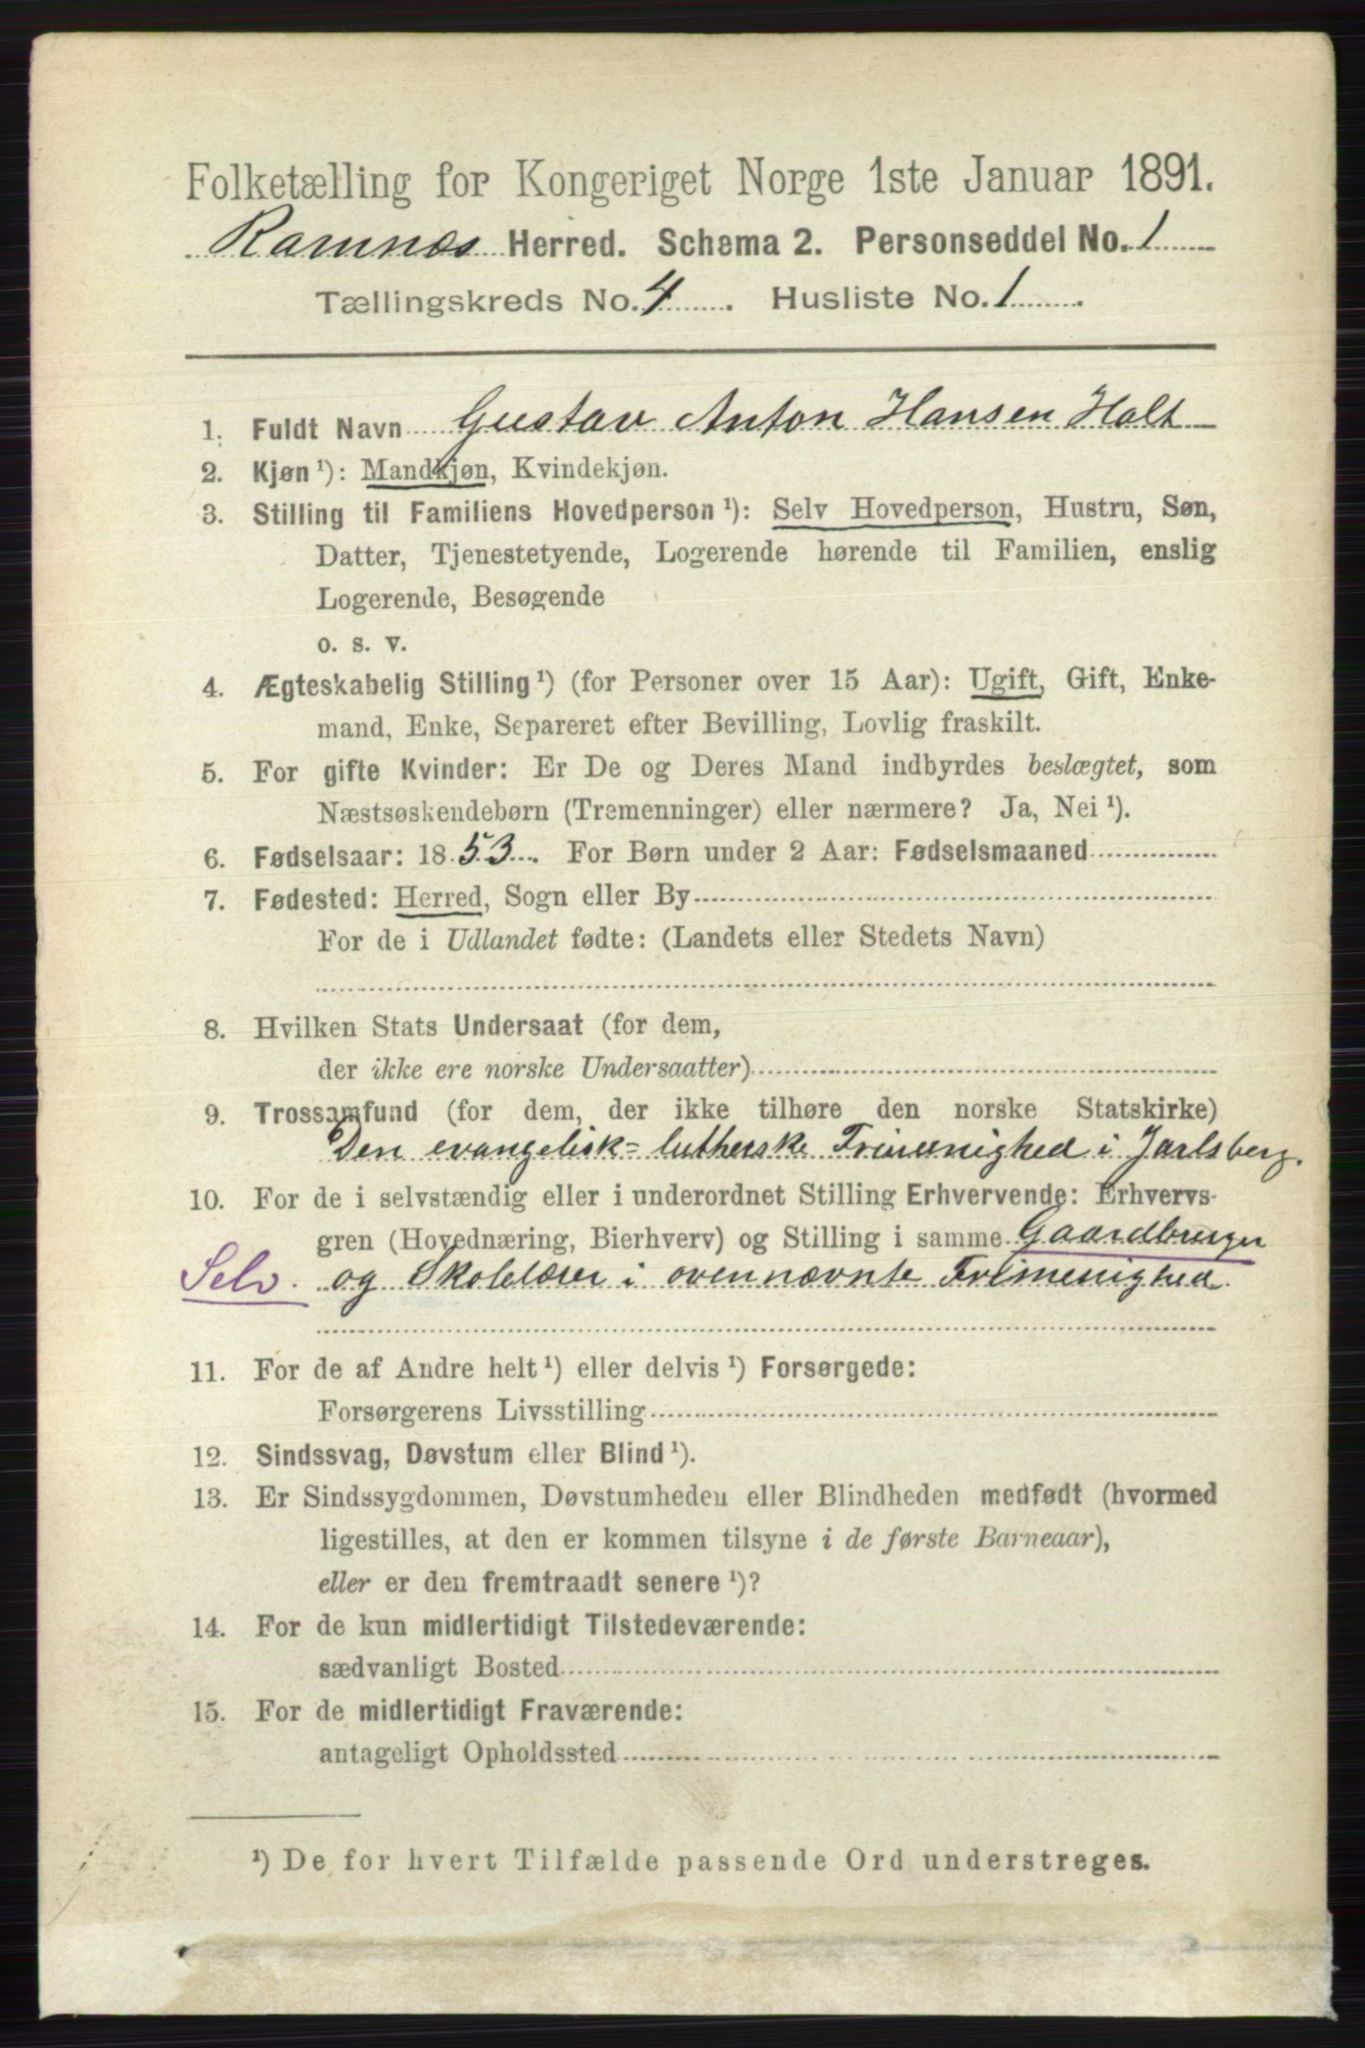 Folketælling for Kongeriget Norge 1ste Januar 1891.
Ramnæs Herred. Schema 2. Personseddel No. 1
Tællingskreds No. 4. Husliste No. 1.
1. Fuldt Navn Gustav Anton Hansen Holt
2. Kjøn ¹): Mandkjøn, Kvindekjøn.
3. Stilling til Familiens Hovedperson ¹): Selv Hovedperson, Hustru, Søn,
Datter, Tjenestetyende, Logerende hørende til Familien, enslig
Logerende, Besøgende
o. s. v.
4. Ægteskabelig Stilling ¹) (for Personer over 15 Aar): Ugift, Gift, Enke-
mand, Enke, Separeret efter Bevilling, Lovlig fraskilt.
5. For gifte Kvinder: Er De og Deres Mand indbyrdes beslægtet, som
Næstsøskendebørn (Tremenninger) eller nærmere? Ja, Nei ¹).
6. Fødselsaar: 1853. For Børn under 2 Aar: Fødselsmaaned
7. Fødested: Herred, Sogn eller By
For de i Udlandet fødte: (Landets eller Stedets Navn)
8. Hvilken Stats Undersaat (for dem,
der ikke ere norske Undersaatter)
9. Trossamfund (for dem, der ikke tilhøre den norske Statskirke)
Den evangelisk-lutherske Frimenighed i Jarlsberg.
10. For de i selvstændig eller i underordnet Stilling Erhvervende: Erhvervs-
gren (Hovednæring, Bierhverv) og Stilling i samme Gaardbruger
Selv. og Skolelærer i ovennævnte Frimenighed.
11. For de af Andre helt ¹) eller delvis ¹) Forsørgede:
Forsørgerens Livsstilling
12. Sindssvag, Døvstum eller Blind ¹).
13. Er Sindssygdommen, Døvstumheden eller Blindheden medfødt (hvormed
ligestilles, at den er kommen tilsyne i de første Barneaar),
eller er den fremtraadt senere ¹)?
14. For de kun midlertidigt Tilstedeværende:
sædvanligt Bosted
15. For de midlertidigt Fraværende:
antageligt Opholdssted
¹) De for hvert Tilfælde passende Ord understreges.